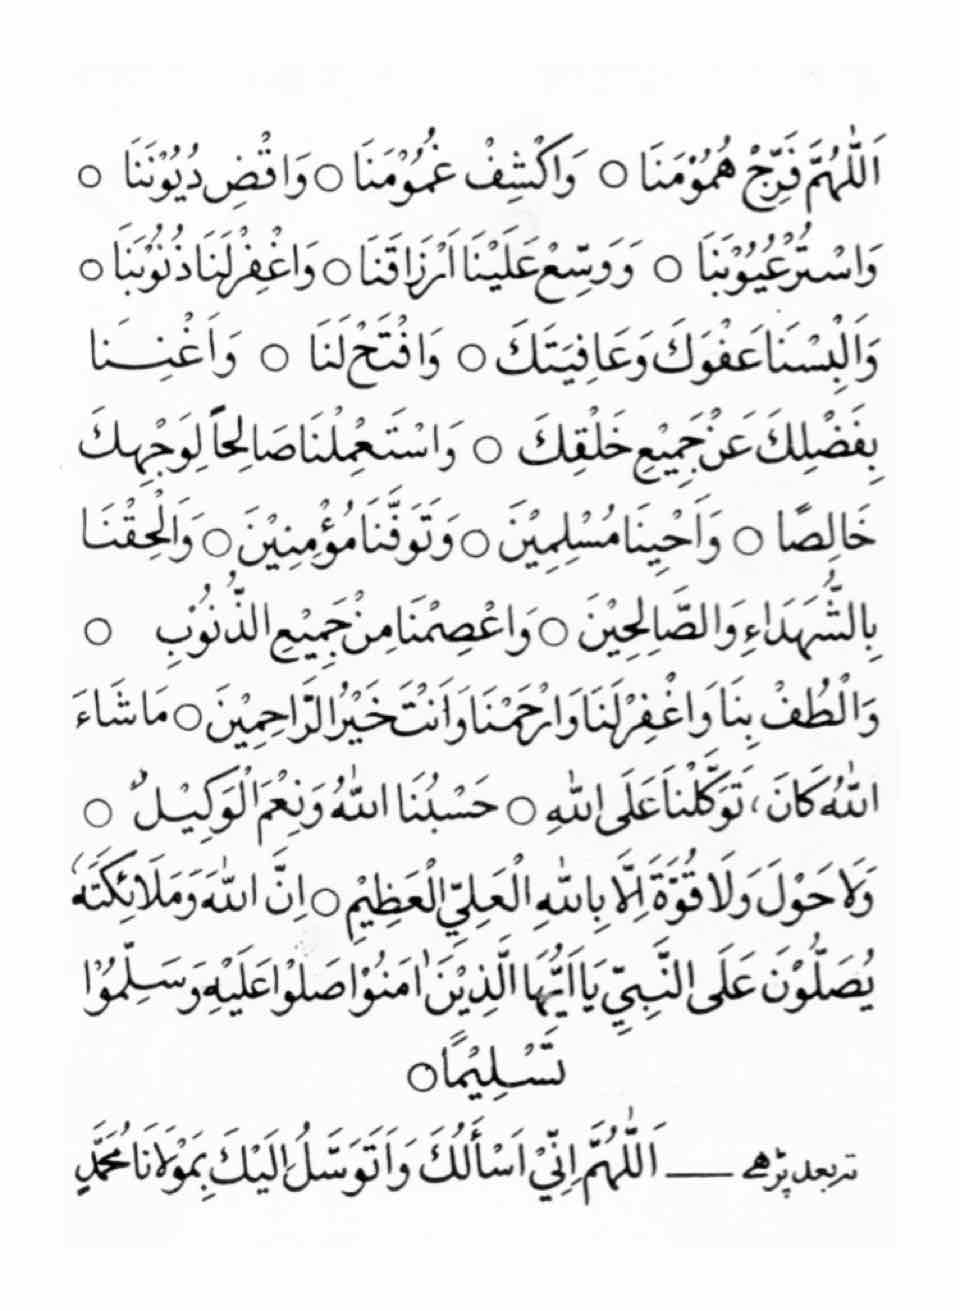 اَللّٰهُمَّ فَرِّجْ هُمُوْمَنَا ○ وَاكْشِفْ غُمُوْمَنَا ○ وَاقْضِ دُيُوْنَنَا ○
وَاسْتُرْ عُيُوْبَنَا ○ وَوَسِّعْ عَلَيْنَا اَرْزَاقَنَا ○ وَاغْفِرْ لَنَا ذُنُوْبَنَا ○
وَاَلْبِسْنَا عَفْوَكَ وَعَافِيَتَكَ ○ وَافْتَحْ لَنَا ○ وَاَغْنِنَا
بِفَضْلِكَ عَنْ جَمِيْعِ خَلْقِكَ ○ وَاسْتَعْمِلْنَا صَالِحًا لِوَجْهِكَ
خَالِصًا ○ وَاَحْيِنَا مُسْلِمِيْنَ ○ وَتَوَفَّنَا مُؤْمِنِيْنَ ○ وَاَلْحِقْنَا
بِالشُّهَدَاءِ وَالصَّالِحِيْنَ ○ وَاعْصِمْنَا مِنْ جَمِيْعِ الذُّنُوْبِ ○
وَالْطُفْ بِنَا وَاغْفِرْ لَنَا وَارْحَمْنَا وَاَنْتَ خَيْرُ الرَّاحِمِيْنَ ○ مَا شَاءَ
اللّٰهُ كَانَ، تَوَكَّلْنَا عَلَى اللّٰهِ ○ حَسْبُنَا اللّٰهُ وَنِعْمَ الْوَكِيْلُ ○
وَلَا حَوْلَ وَلَا قُوَّةَ اِلَّا بِاللّٰهِ الْعَلِيِّ الْعَظِيْمِ ○ اِنَّ اللّٰهَ وَمَلَائِكَتَهٗ
يُصَلُّوْنَ عَلَى النَّبِيِّ يَا اَيُّهَا الَّذِيْنَ اٰمَنُوْا صَلُّوْا عَلَيْهِ وَسَلِّمُوْا
تَسْلِيْمًا ○
تربعد پڑهے — اَللّٰهُمَّ اِنِّيْ اَسْأَلُكَ وَاَتَوَسَّلُ اِلَيْكَ بِمَوْلَانَا مُحَمَّدٍ